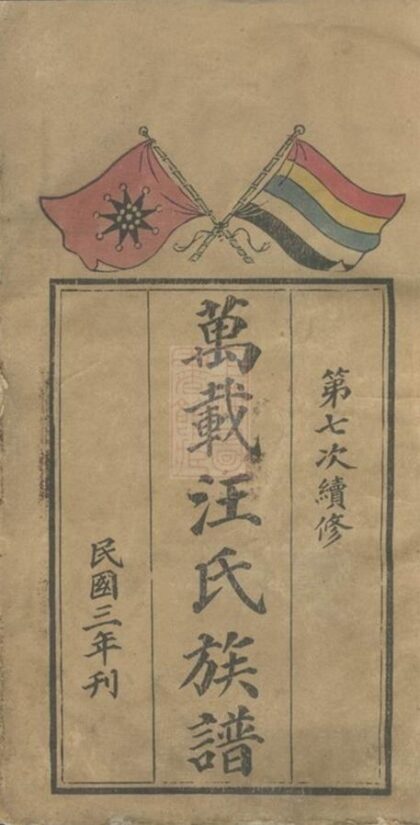 第七次續修
萬載汪氏族譜
民國三年刊